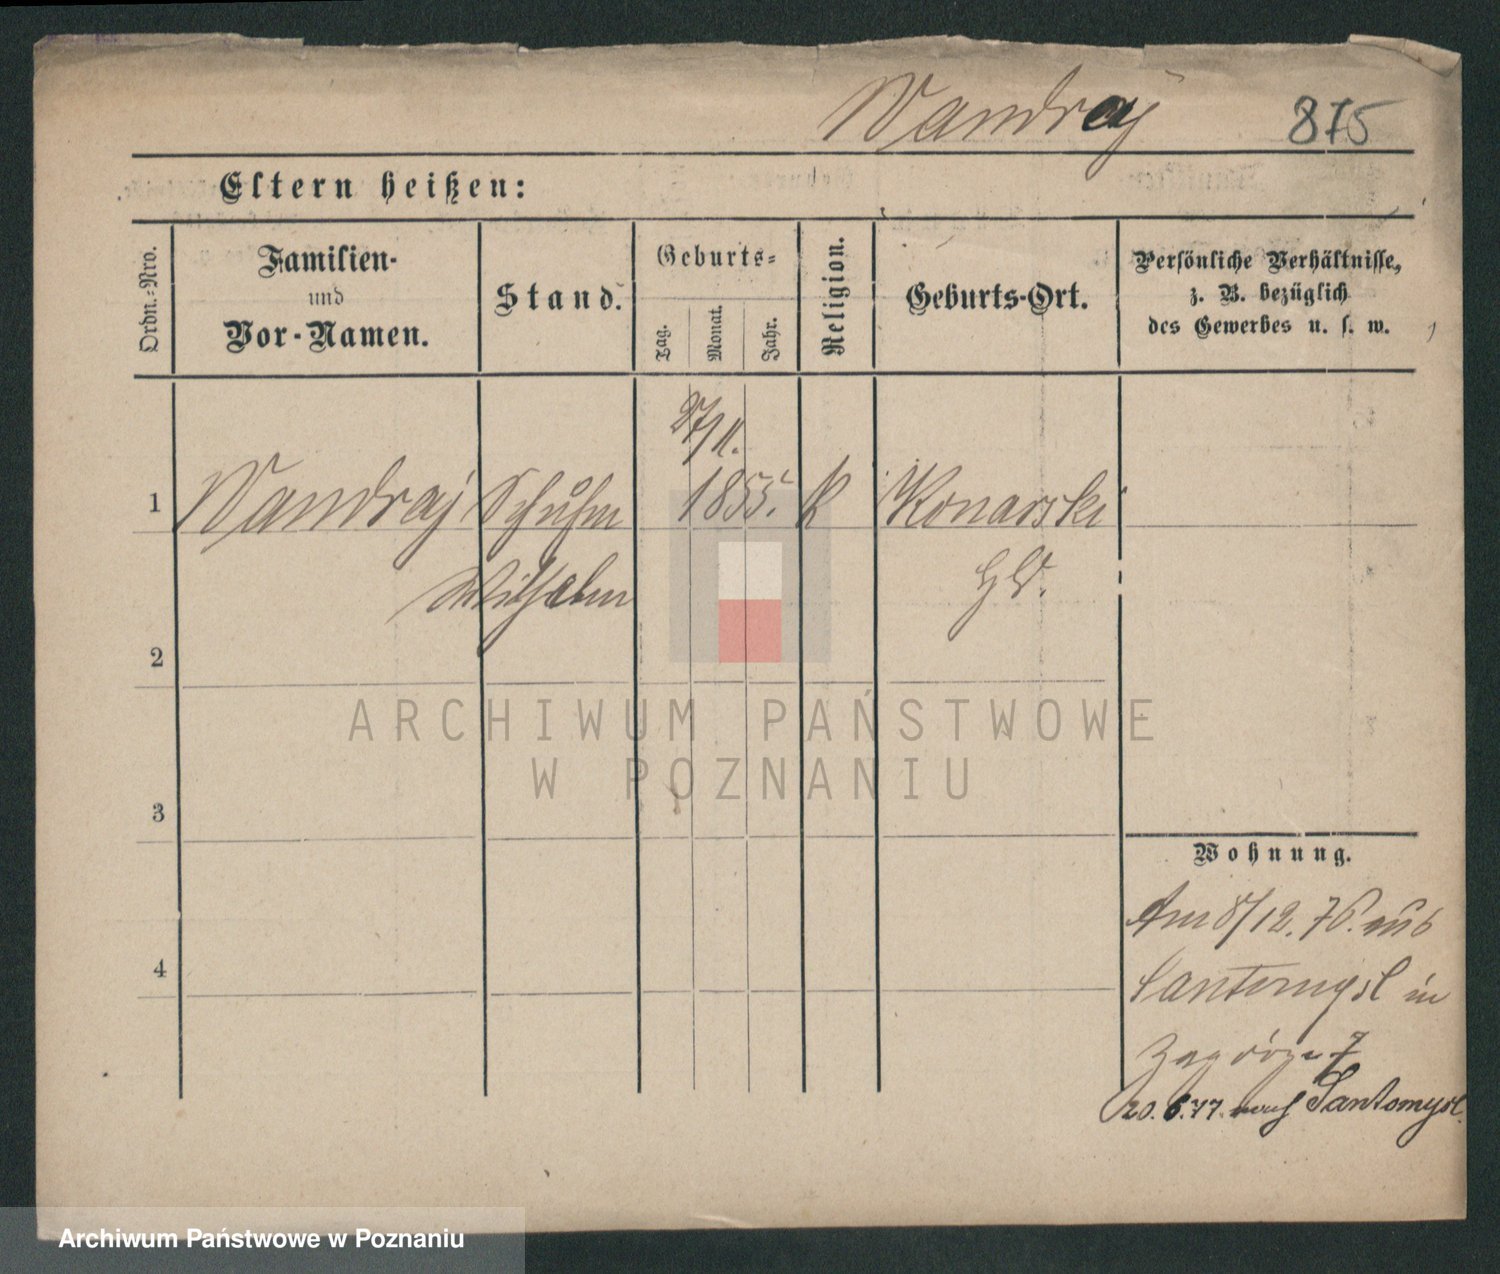 Wandraj 875
Eltern heißen:
Ordn.-Nro.
Familien-
und
Vor-Namen.
Stand.
Geburts-
Tag.
Monat.
Jahr.
Religion.
Geburts-Ort.
Persönliche Verhältnisse,
z. B. bezüglich
des Gewerbes u. s. w.
27/11.
1 Wandraj 1855. K Konarski
Wilhelm Hld.
2
ARCHIWUM PAŃSTWOWE
W POZNANIU
3
Wohnung.
Am 8/12. 76. aus
4
Santomysl in
Zagórze 7
20.6.77. nach Santomysl.
Archiwum Państwowe w Poznaniu